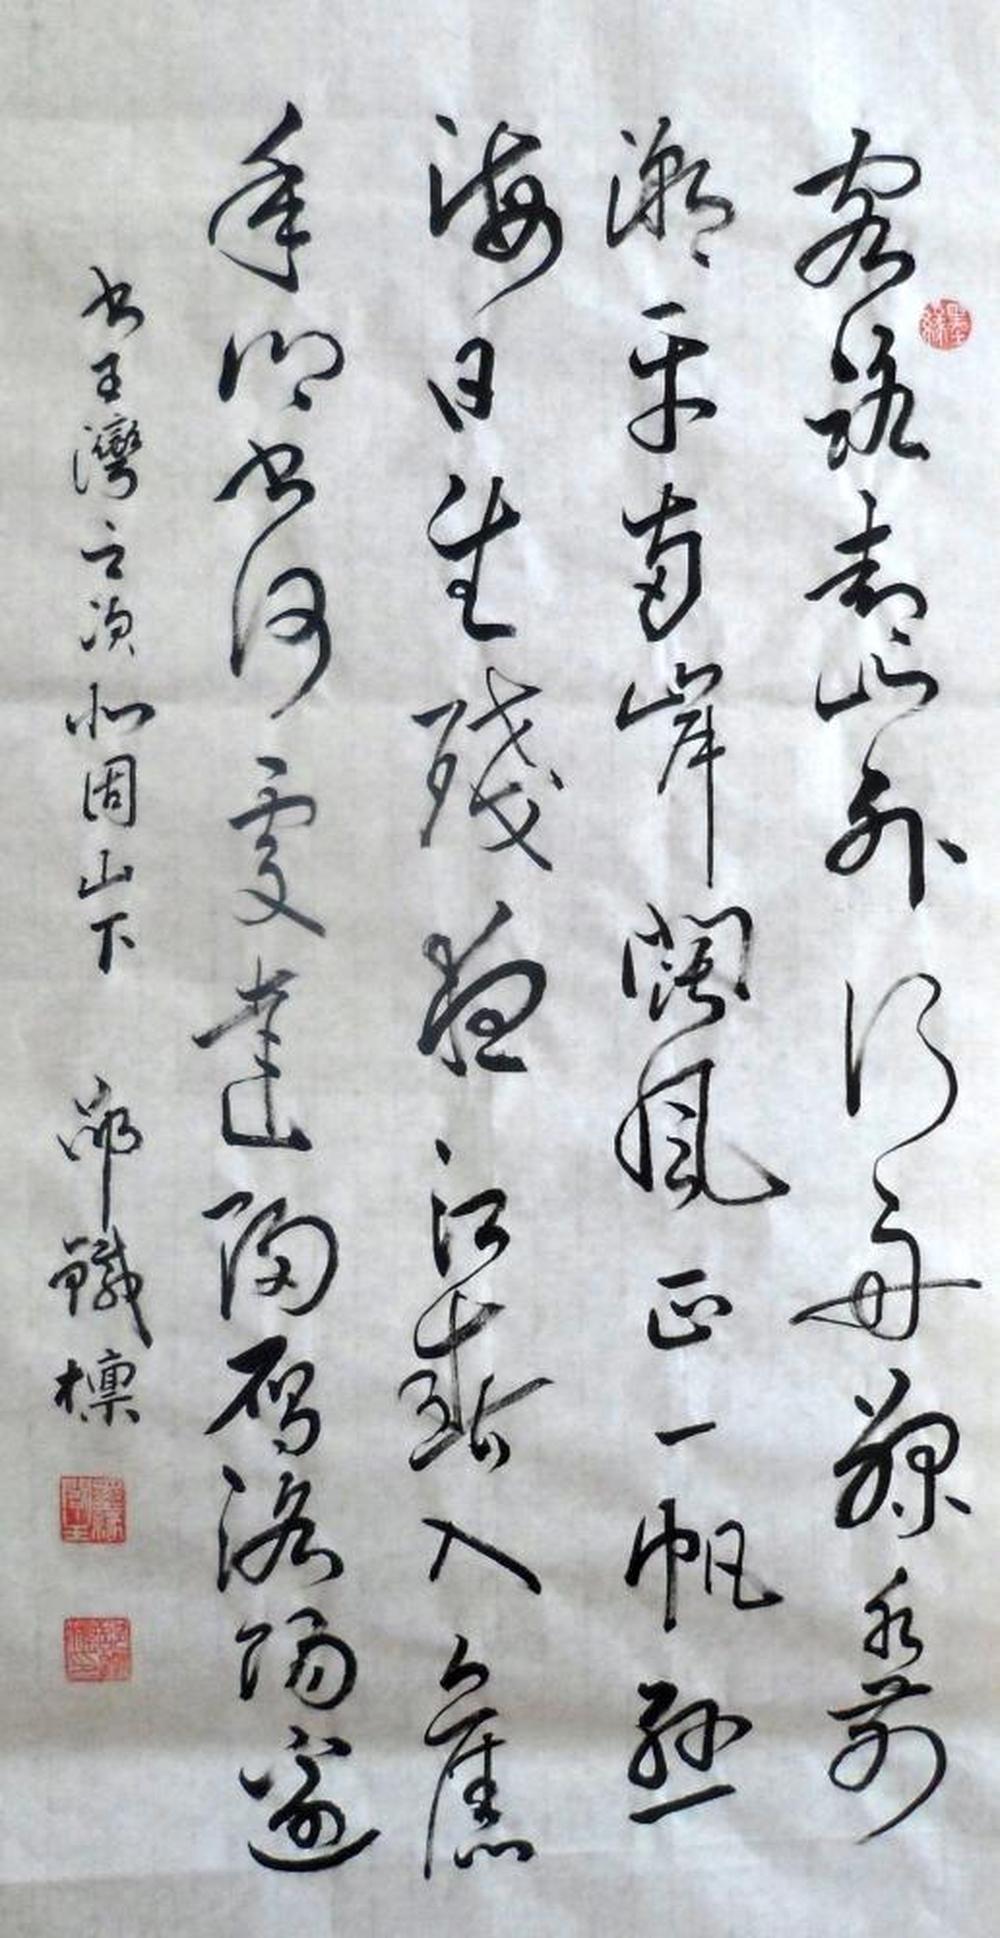 客路青山外行舟綠水前
潮平兩岸闊風正一帆懸
海日生殘夜江春入舊
年鄉書何處達歸雁洛陽邊
書王灣之次北固山下 邵鐵